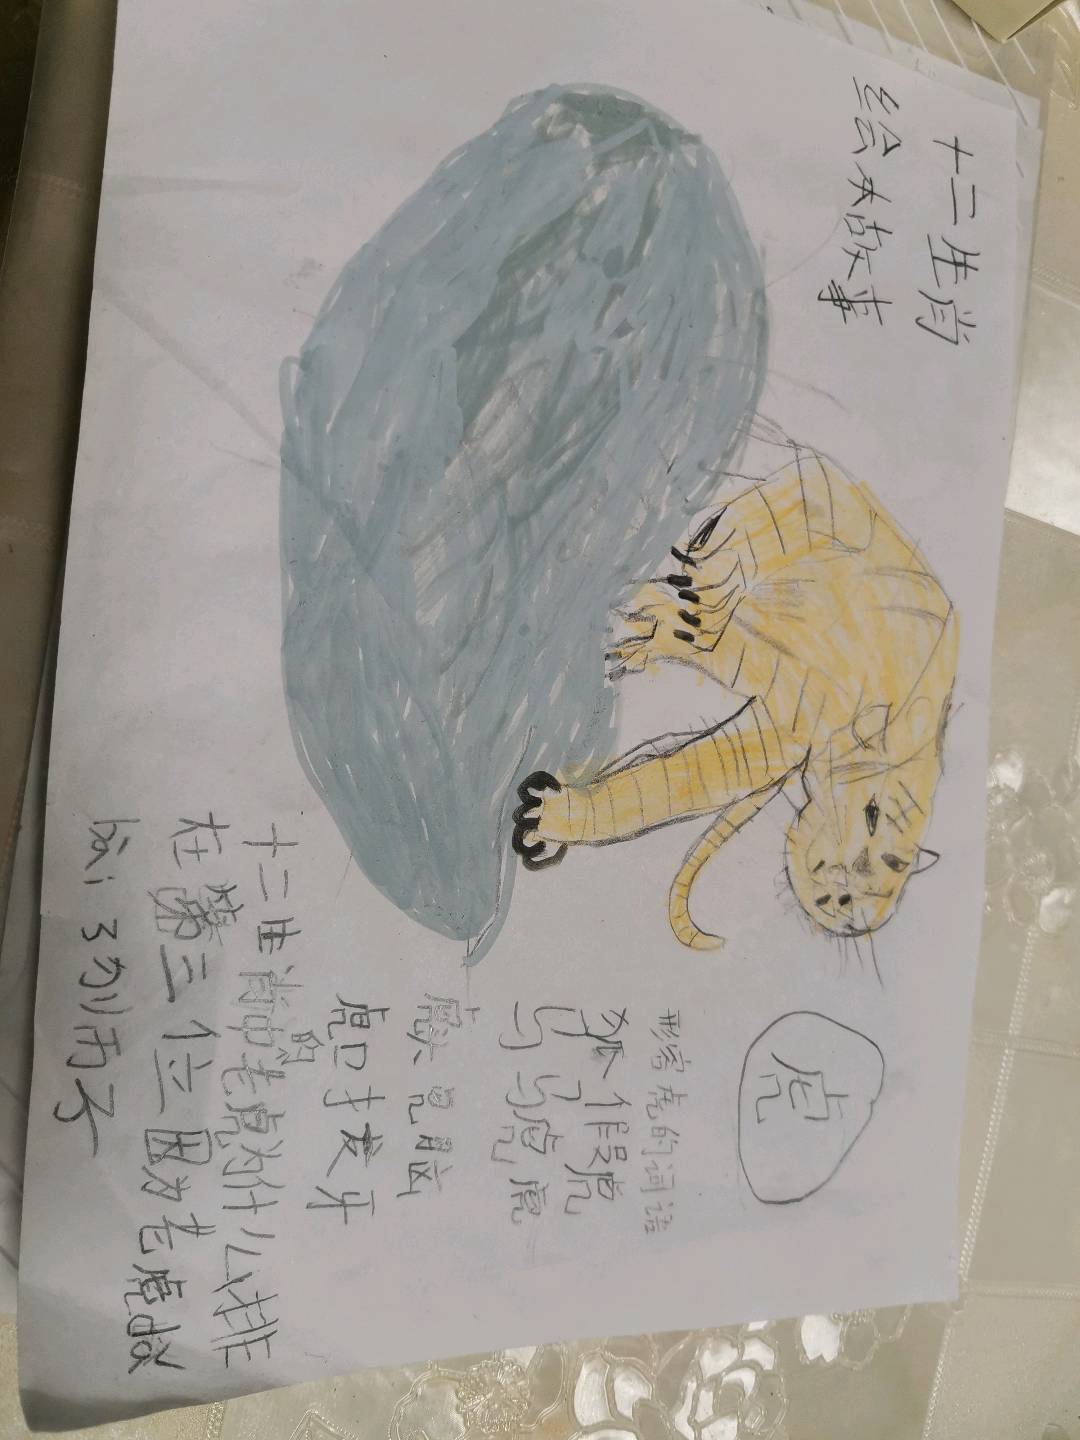 十二生肖
绘本故事
虎
形容虎的词语
狐假虎
马马虎虎
虎头虎脑
虎口拔牙
十二生肖中的老虎为什么排
在第三位因为老虎
3